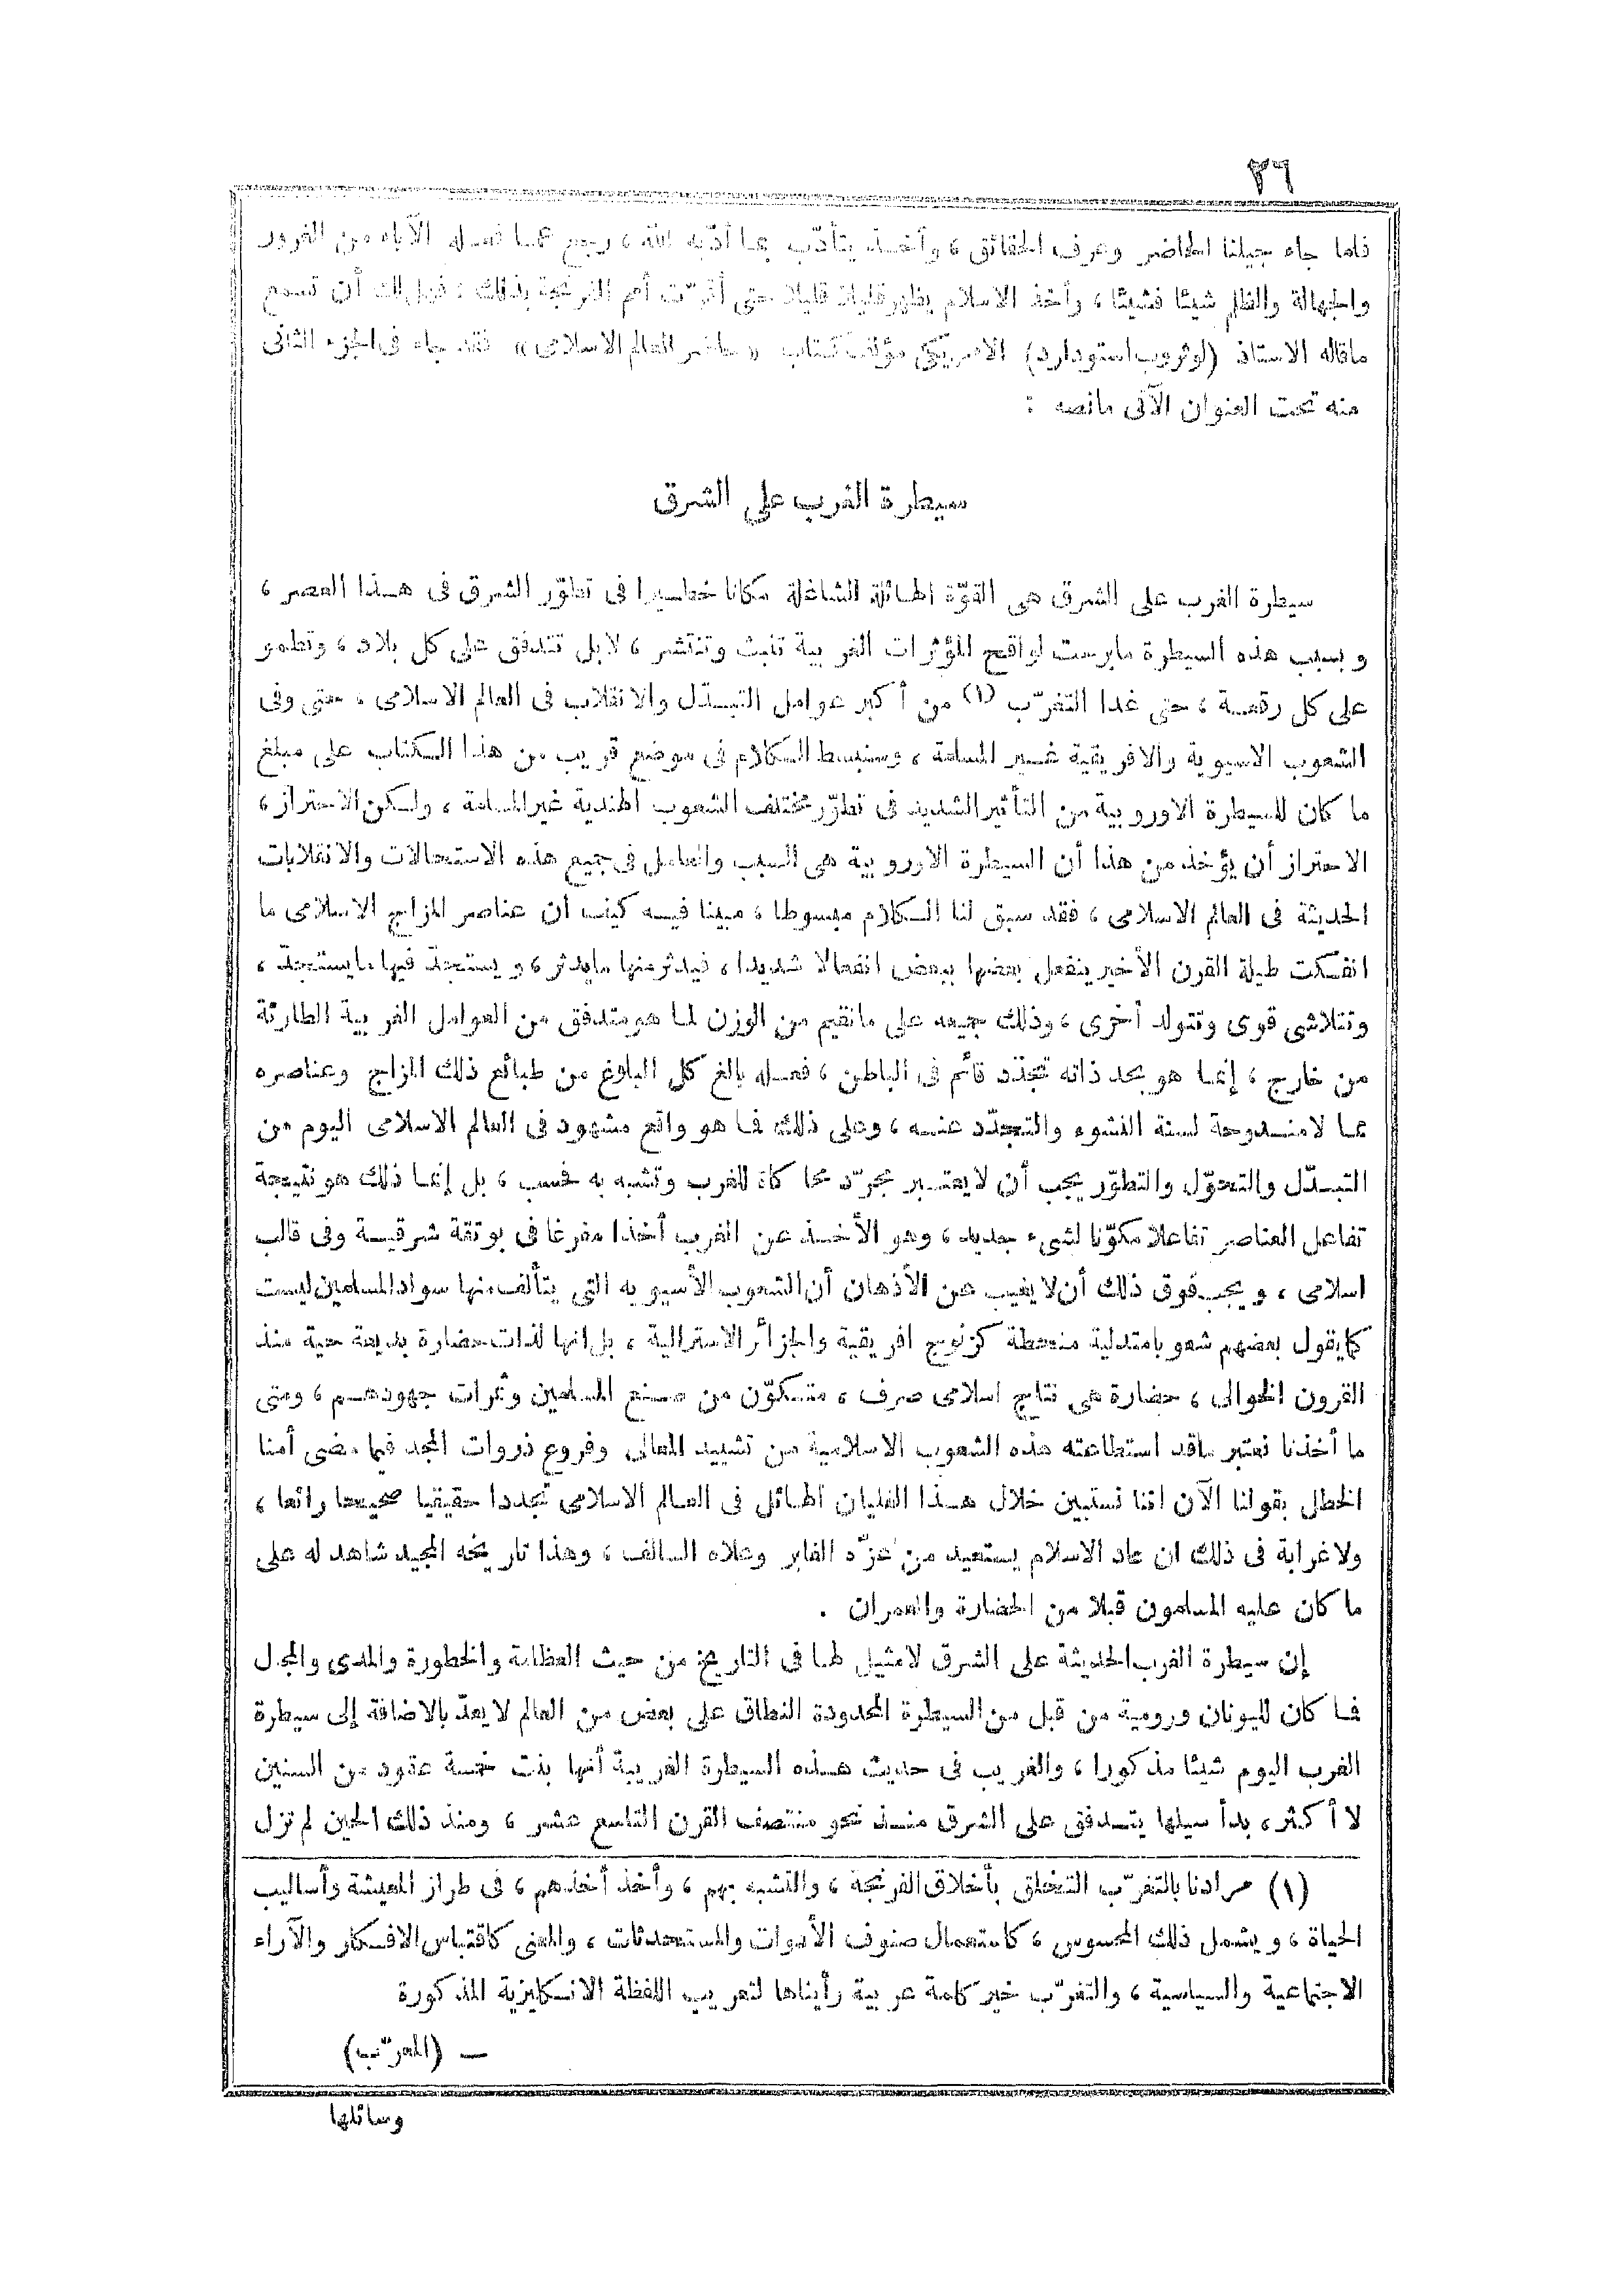 ٣٦
فلما جاء جيلنا الحاضر وعرف الحقائق ، وأخذ يتأدّب بما أدّبه الله ، رجع عما فعله الآباء من الغرور
والجهالة والظلم شيئا فشيئا ، وأخذ الاسلام يظهر قليلا قليلا حتى أقرّت أمم الفرنجة بذلك ، فهل لك أن تسمع
ماقاله الاستاذ (لوثروب استودارد) الامريكى مؤلف كتاب « حاضر العالم الاسلامى » فقد جاء فى الجزء الثانى
منه تحت العنوان الآتى مانصه :
سيطرة الغرب على الشرق
سيطرة الغرب على الشرق هى القوّة الهائلة الشاغلة مكانا خطيرا فى تطوّر الشرق فى هذا العصر ،
و بسبب هذه السيطرة مابرحت لواقح المؤثرات الغربية تنبث وتنتشر ، لا بل تتدفق على كل بلاد ، وتطمو
على كل رقعة ، حتى غدا التغرّب (١) من أكبر عوامل التبدّل والانقلاب فى العالم الاسلامى ، حتى وفى
الشعوب الاسيوية والافريقية غير المسلمة ، وسنبسط الكلام فى موضع قريب من هذا الكتاب على مبلغ
ما كان للسيطرة الاوروبية من التأثير الشديد فى تطوّر مختلف الشعوب الهندية غير المسلمة ، ولكن الاحتراز ،
الاحتراز أن يؤخذ من هذا أن السيطرة الاوروبية هى السبب والعامل فى جميع هذه الاستحالات والانقلابات
الحديثة فى العالم الاسلامى ، فقد سبق لنا الكلام مبسوطا ، مبينا فيه كيف ان عناصر المزاج الاسلامى ما
انفكت طيلة القرن الأخير ينفعل بعضها ببعض انفعالا شديدا ، فيدثر منها مايدثر ، و يستجدّ فيها مايستجدّ ،
وتتلاشى قوى وتتولد أخرى ، وذلك جميعه على مانقيم من الوزن لما هو متدفق من العوامل الغربية الطارئة
من خارج ، إنما هو بحد ذاته تجدّد قائم فى الباطن ، فعله بالغ كل البلاغ من طبائع ذلك المزاج وعناصره
مما لامندوحة لسنة النشوء والتجدّد عنه ، وعلى ذلك فما هو واقع مشهود فى العالم الاسلامى اليوم من
التبدّل والتحوّل والتطوّر يجب أن لايعتبر مجرّد محاكاة للغرب وتشبه به فحسب ، بل إنما ذلك هو نتيجة
تفاعل العناصر تفاعلا مكوّنا لشىء جديد ، وهو الأخذ عن الغرب أخذا مفرغا فى بوتقة شرقية وفى قالب
اسلامى ، و يجب فوق ذلك أن لا يغيب عن الأذهان أن الشعوب الأسيويه التى يتألف منها سواد المسلمين ليست
كما يقول بعضهم شعو با متدلية منحطة كزنوج افريقية والجزائر الاسترالية ، بل انها لذات حضارة بديعة حية منذ
القرون الخوالى ، حضارة هى نتاج اسلامى صرف ، متكوّن من صنع المسلمين وثمرات جهودهم ، ومتى
ما أخذنا نعتبر ماقد استطاعته هذه الشعوب الاسلامية من تشييد المعالى وفروع ذروات المجد فيما مضى أمنا
الخطل بقولنا الآن اننا نستبين خلال هذا الغليان الهائل فى العالم الاسلامى تجددا حقيقيا صحيحا رائعا ،
ولاغرابة فى ذلك ان عاد الاسلام يستعيد من عزّه الغابر وعلاه السالف ، وهذا تاريخه المجيد شاهد له على
ما كان عليه المسلمون قبلا من الحضارة والعمران .
إن سيطرة الغرب الحديثة على الشرق لامثيل لها فى التاريخ من حيث العظامة والخطورة والمدى والمجال
فما كان لليونان ورومية من قبل من السيطرة المحدودة النطاق على بعض من العالم لا يعدّ بالاضافة إلى سيطرة
الغرب اليوم شيئا مذكورا ، والغريب فى حديث هذه السيطرة الغربية أنها بنت خمسة عقود من السنين
لا أكثر ، بدأ سيلها يتدفق على الشرق منذ نحو منتصف القرن التاسع عشر ، ومنذ ذلك الحين لم تزل
(١) مرادنا بالتغرّب التخلق بأخلاق الفرنجة ، والتشبه بهم ، وأخذ أخذهم ، فى طراز المعيشة وأساليب
الحياة ، و يشمل ذلك المحسوس ، كاستعمال صنوف الأدوات والمستحدثات ، والمعنى كاقتباس الافكار والآراء
الاجتماعية والسياسية ، والتغرّب خير كلمة عربية رأيناها لتعريب اللفظة الانكليزية المذكورة
— (المعرّب)
وسائلها